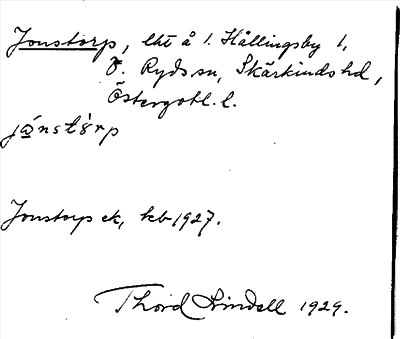 Jonstorp, lht å 1. Hållingsby 1,
Ö. Ryds sn, Skärkinds hd,
Östergötl. l.
jónstòrp
Jonstorp ek, kb 1927.
Thord Lindell 1929.